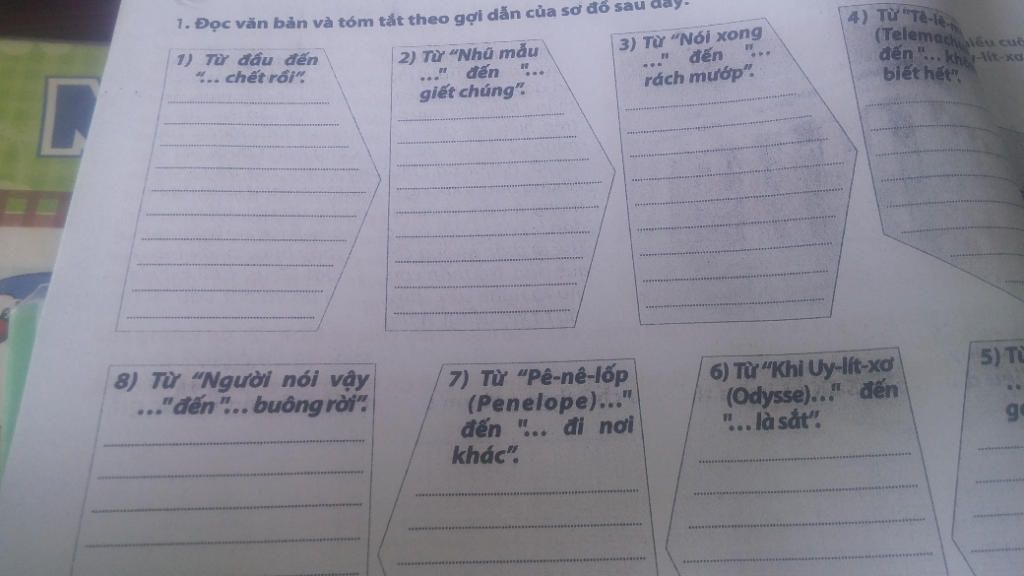 1. Đọc văn bản và tóm tắt theo gợi dẫn của sơ đồ sau đây:
1) Từ đầu đến
"... chết rồi".
2) Từ "Nhũ mẫu
..." đến "...
giết chúng".
3) Từ "Nói xong
..." đến "...
rách mướp".
4) Từ "Tê-lê-
(Telemach
đến "...
biết hết".
8) Từ "Người nói vậy
..." đến "... buông rời".
7) Từ "Pê-nê-lốp
(Penelope)..."
đến "... đi nơi
khác".
6) Từ "Khi Uy-lít-xơ
(Odysse)..." đến
"... là sắt".
5) Từ